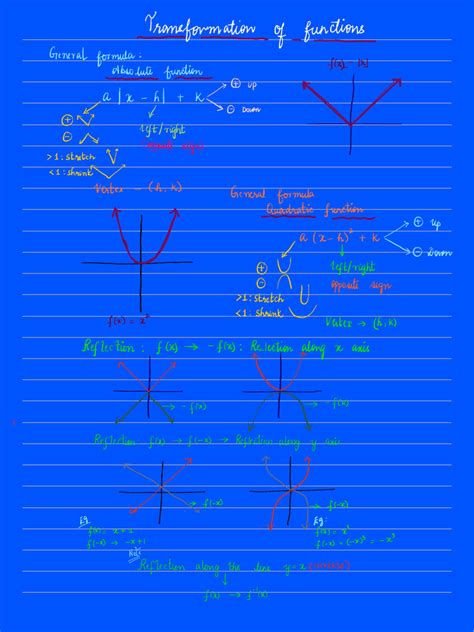 Transformation of functions
General formula:
Absolute function
f(x) = |x|
a | x - h | + k
⊕ up
⊖ Down
⊕
⊖
left/right
opposite sign
>1: stretch
<1: shrink
Vertex - (h, k)
General formula
Quadratic function
a (x - h)² + k
⊕ up
⊖ Down
⊕
⊖
left/right
opposite sign
>1: stretch
<1: shrink
Vertex → (h, k)
f(x) = x²
Reflection: f(x) → -f(x): Reflection along x axis
→ -f(x)
→ -f(x)
Reflection: f(x) → f(-x) → Reflection along y axis
→ f(-x)
→ f(-x)
Eg:
f(x) = x + 2
f(-x) → -x + 2
Eg:
f(x) = x³
f(-x) = (-x)³ = -x³
Reflection along the line y = x (inverse)
f(x) → f⁻¹(x)